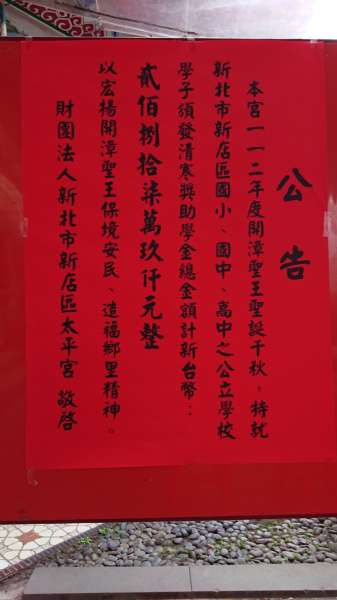 公告
本宮一一二年度開漳聖王聖誕千秋，特就
新北市新店區國小、國中、高中之公立學校
學子頒發清寒獎助學金總金額計新台幣：
貳佰捌拾柒萬玖仟元整
以宏揚開漳聖王保境安民、造福鄉里精神。
財團法人新北市新店區太平宮 敬啓